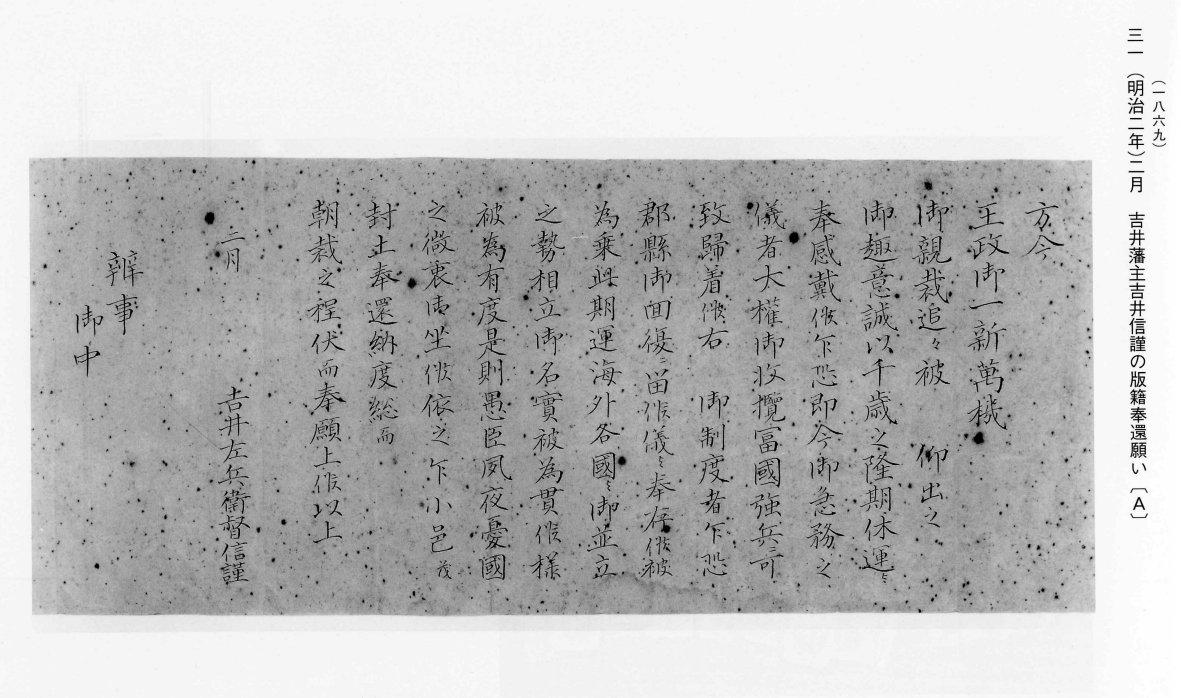 三一　(明治二年)二月　吉井藩主吉井信謹の版籍奉還願い　〔A〕
(一八六九)
方今
王政御一新萬機
御親裁追々被　仰出之
御趣意誠以千歳之隆期休運ニ
奉感戴候乍恐即今御急務之
儀者大權御收攬冨國強兵ニ可
致歸着候右　御制度者乍恐
郡縣御回復ニ留候儀ニ奉存候被
為乗此期運海外各國ニ御並立
之勢相立御名實被為貫候様
被為有度是則愚臣夙夜憂國
之微衷御坐候依之乍小邑茂
封土奉還納度総而
朝裁之程伏而奉願上候以上
二月　吉井左兵衞督信謹
辨事
御中